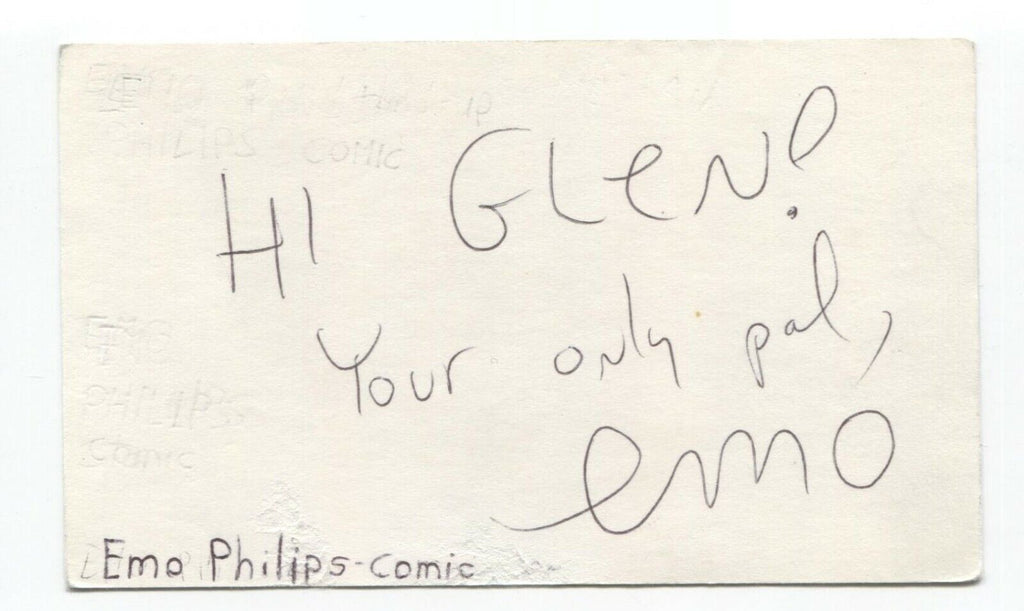 EMO
PHILIPS COMIC
HI GLEN!
Your only pal,
emo
EMO
PHILIPS
Comic
Emo Philips-comic